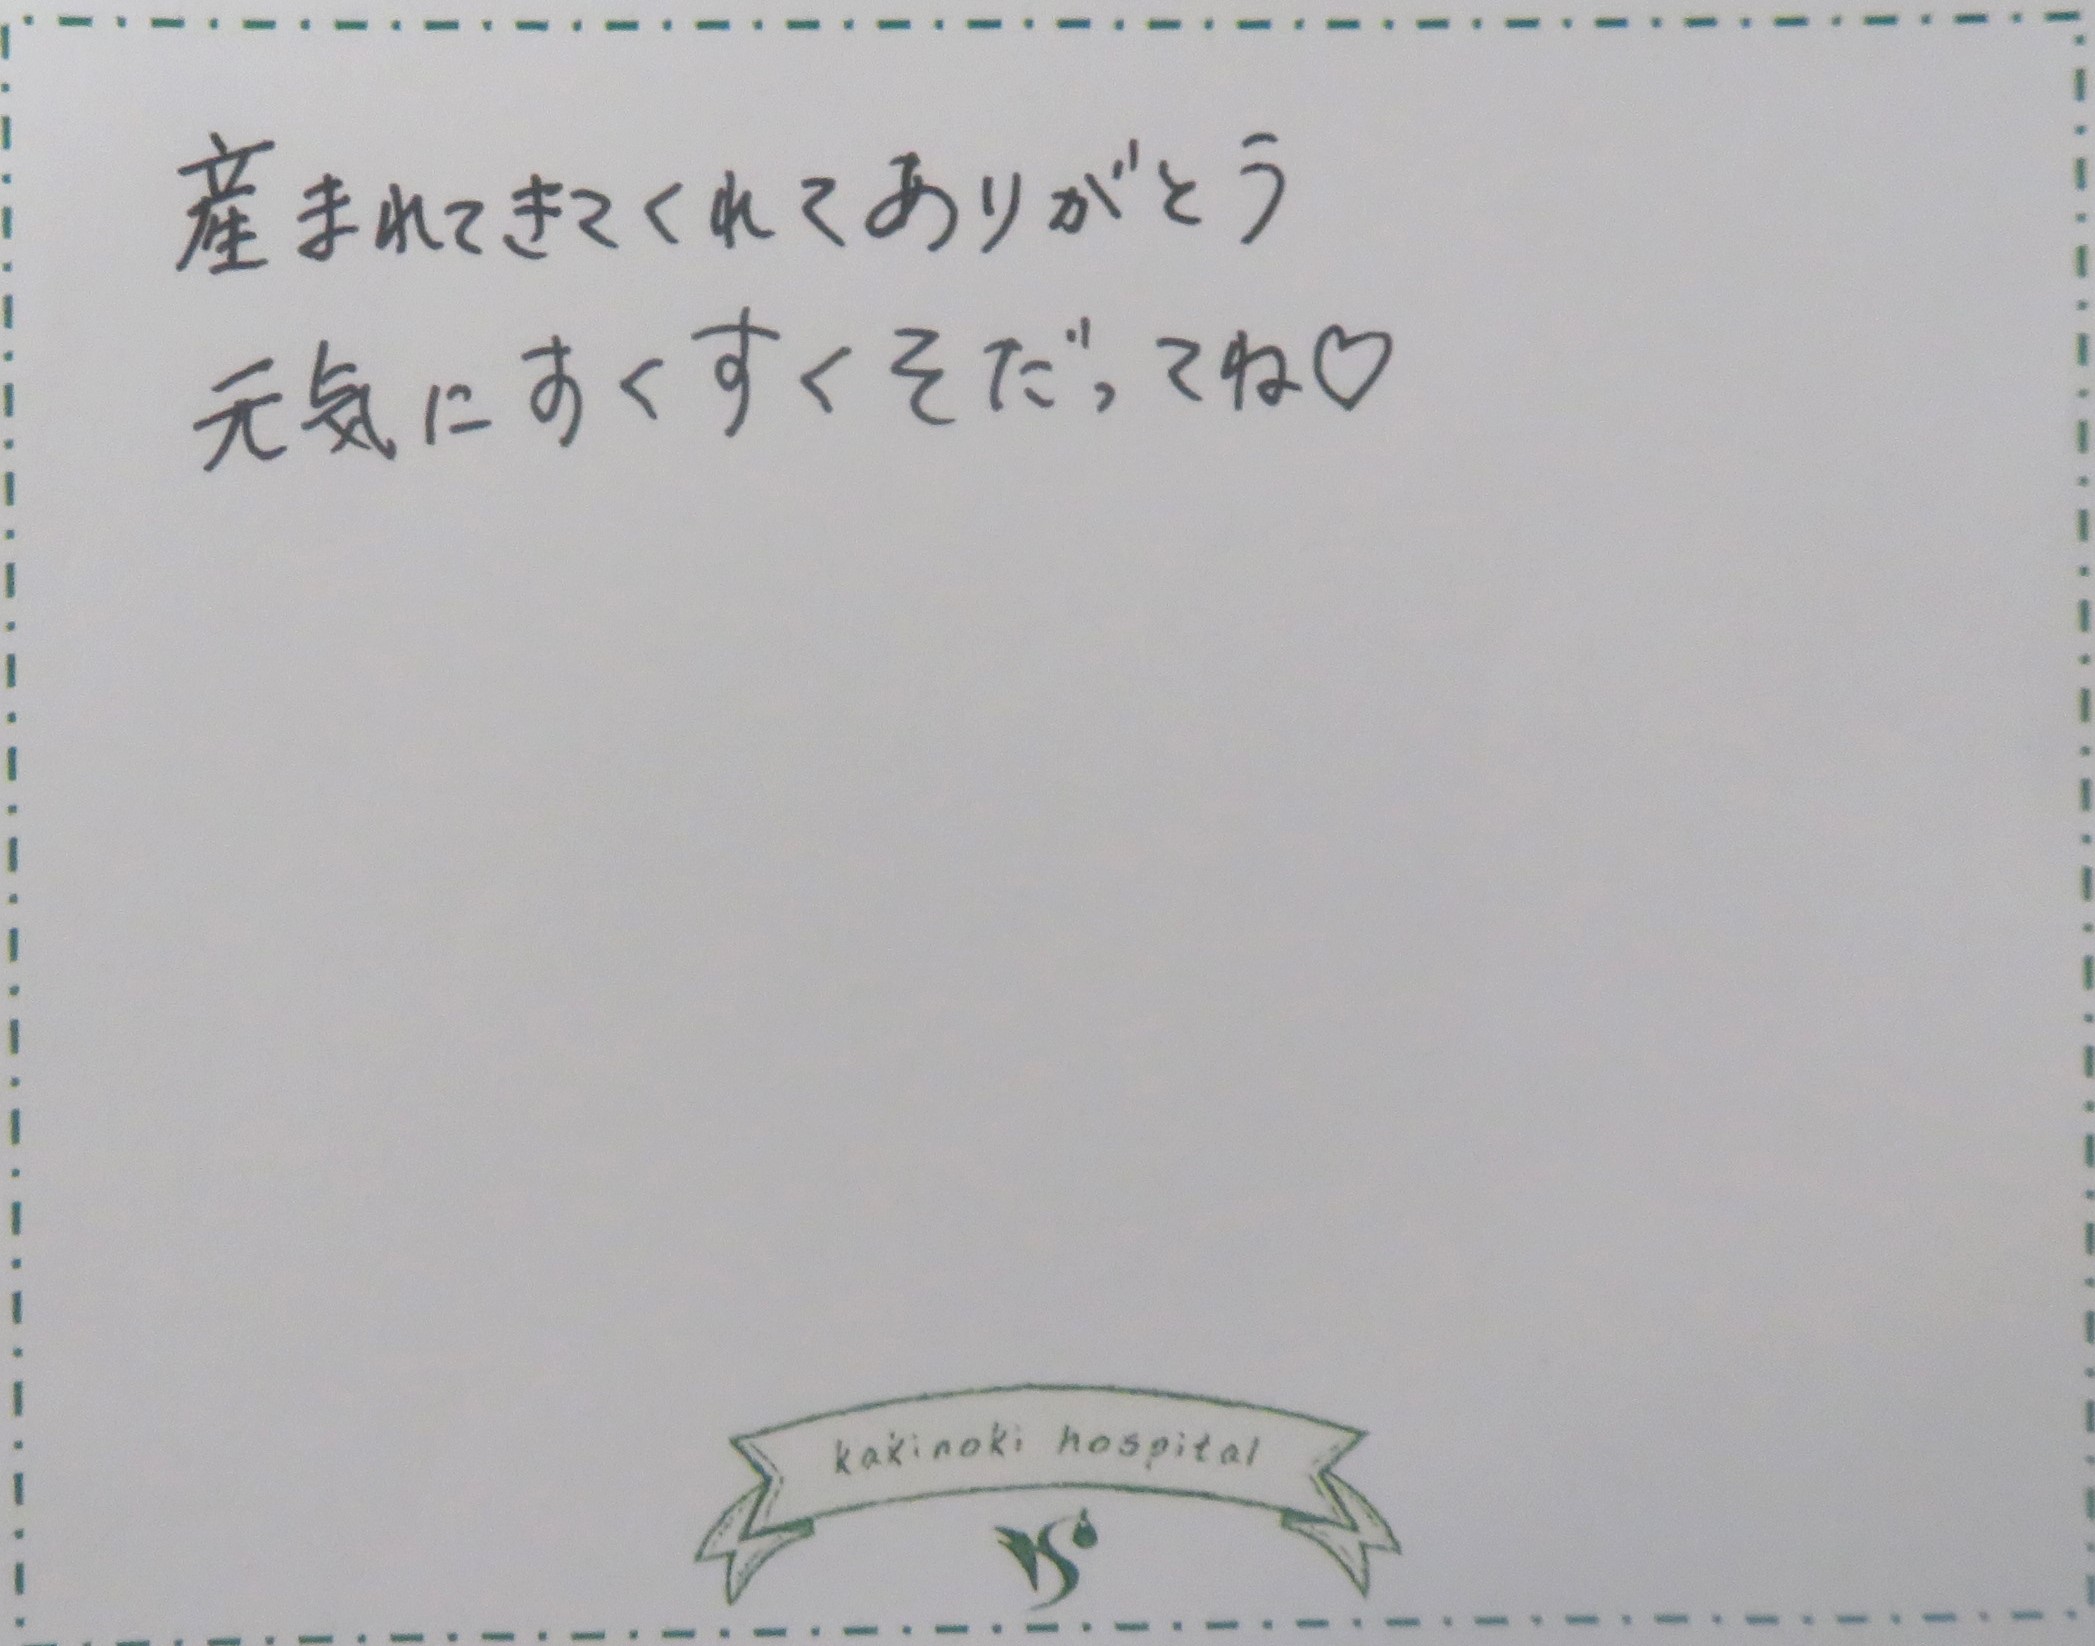 産まれてきてくれてありがとう
元気にすくすくそだってね♡
kakinoki hospital